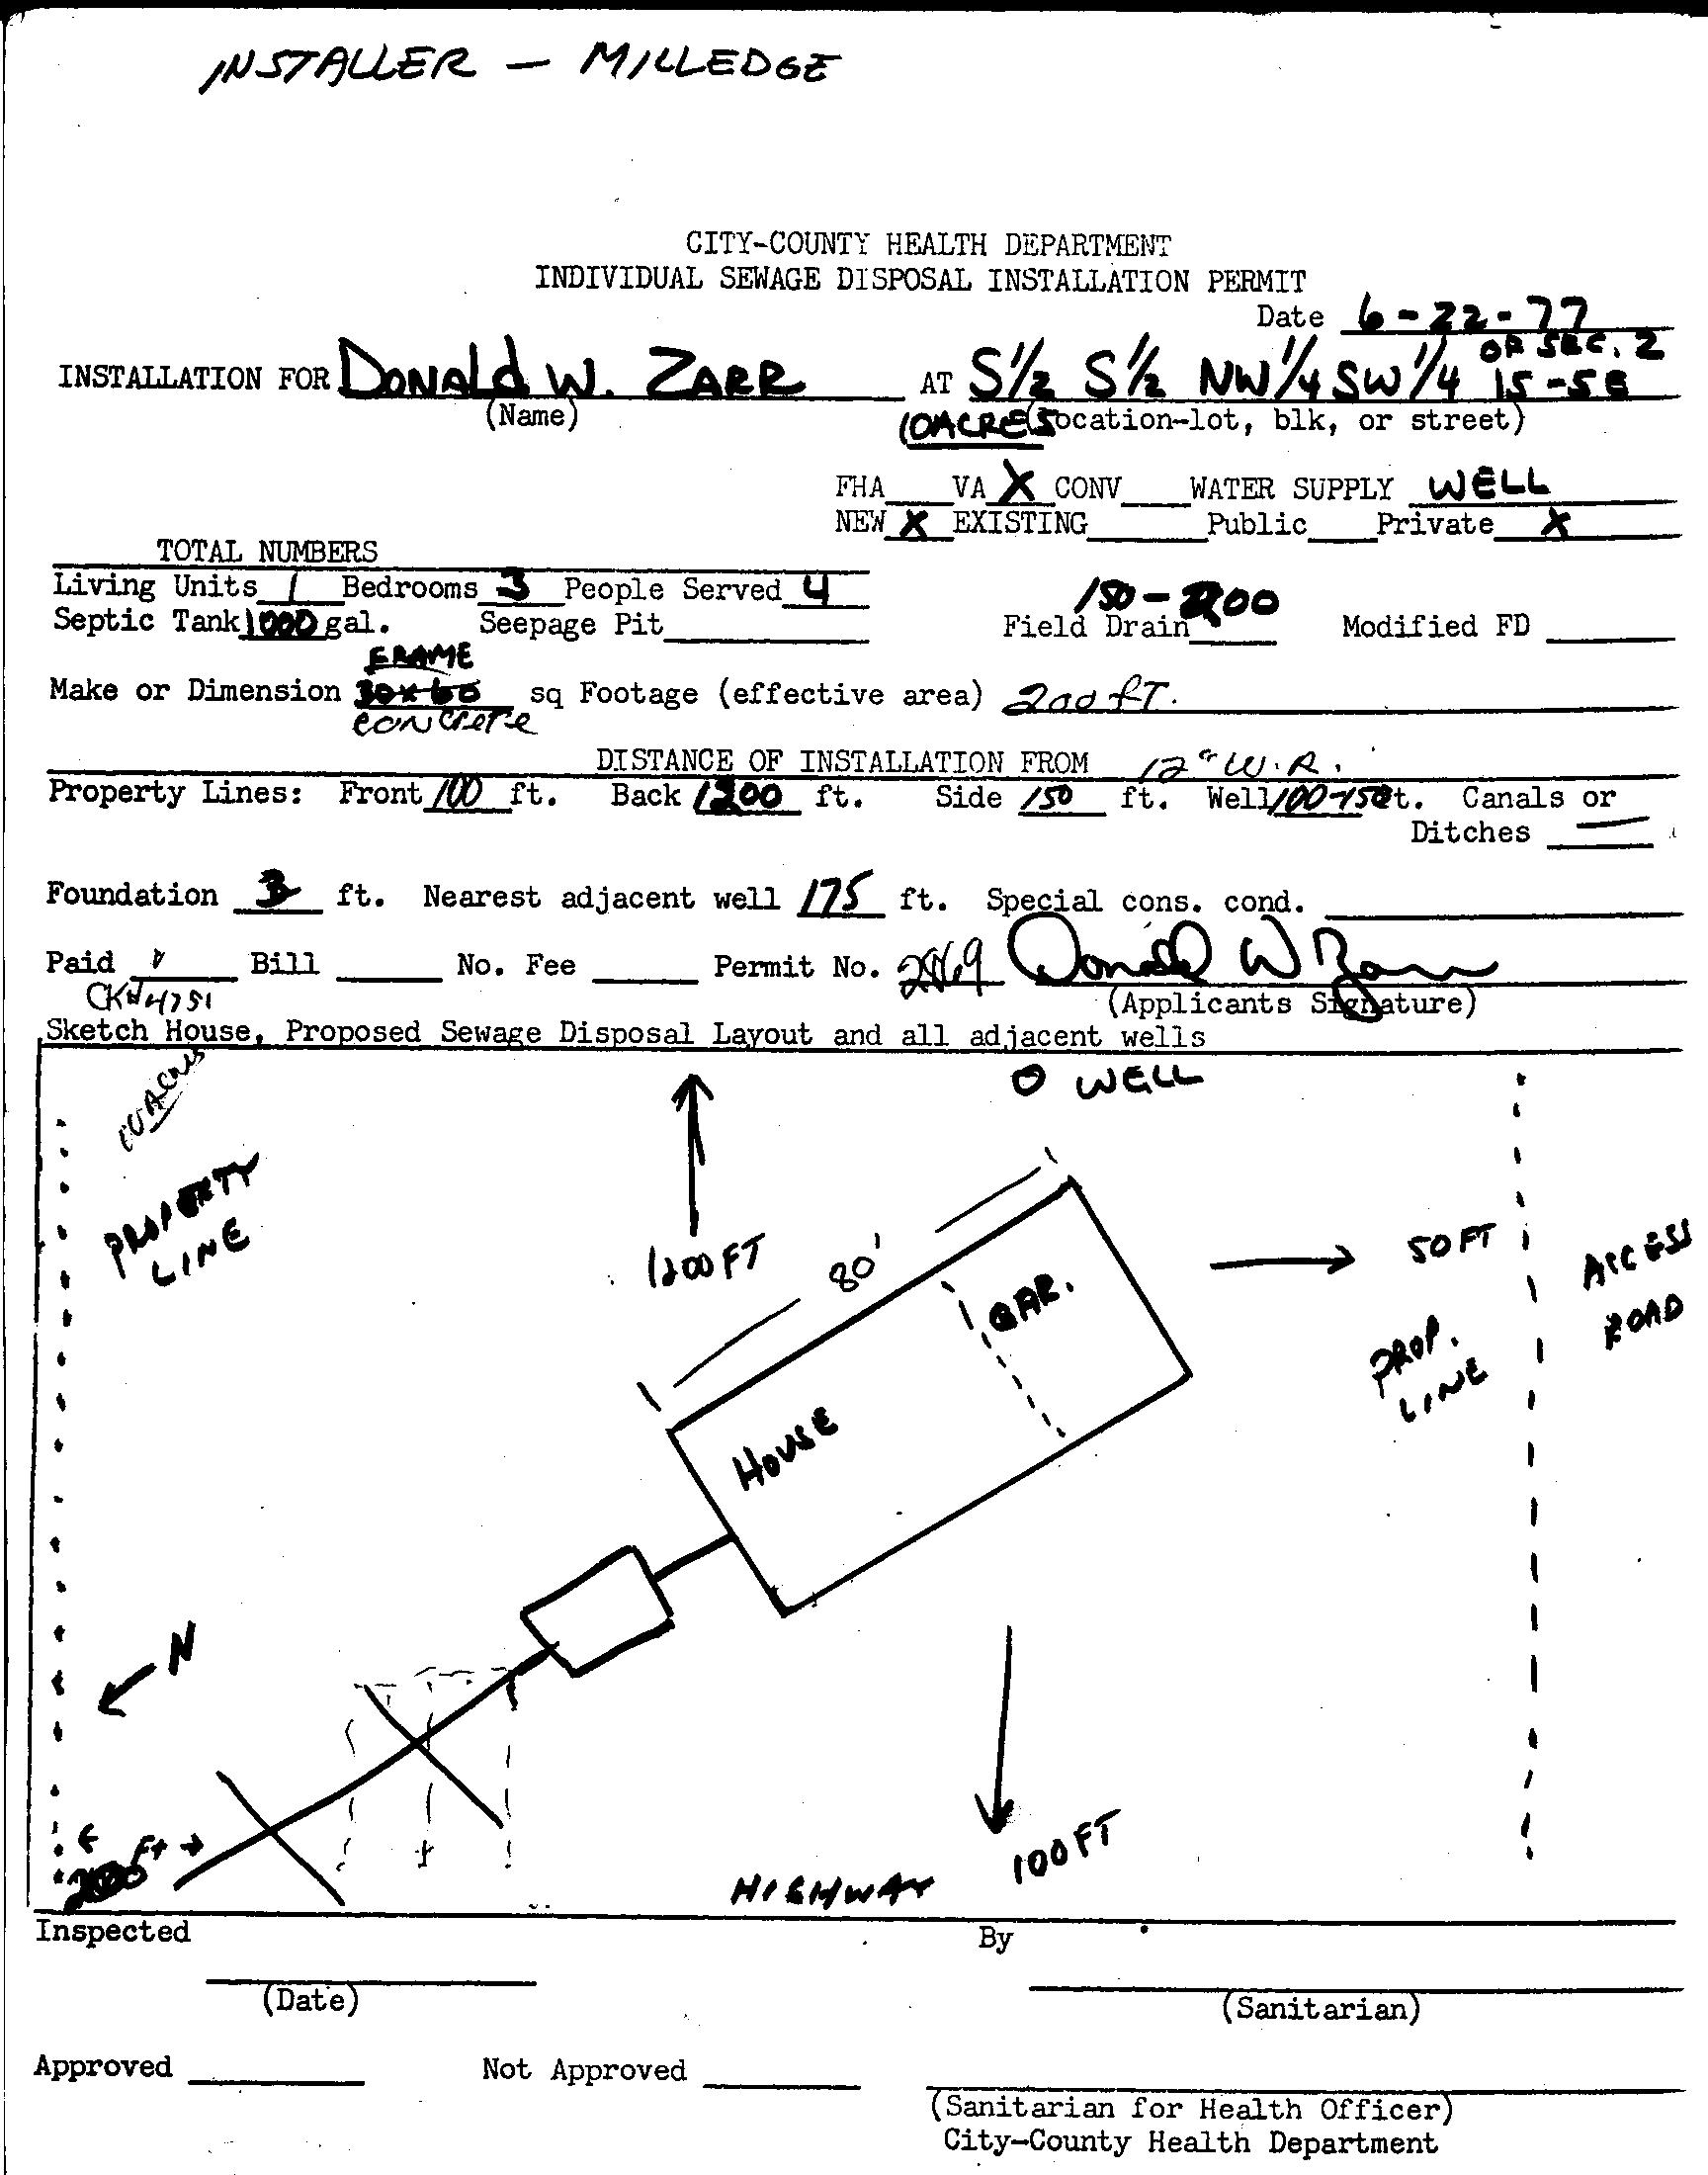 INSTALLER - MILLEDGE
CITY-COUNTY HEALTH DEPARTMENT
INDIVIDUAL SEWAGE DISPOSAL INSTALLATION PERMIT
Date 6-22-77
INSTALLATION FOR DONALD W. ZARR AT S 1/2 S 1/2 NW 1/4 SW 1/4 OF SEC. 2
15-5E
(Name) 10 ACRES (Location-lot, blk, or street)
FHA VA X CONV WATER SUPPLY WELL
NEW X EXISTING Public Private X
TOTAL NUMBERS
Living Units 1 Bedrooms 3 People Served 4
Septic Tank 1000 gal. Seepage Pit Field Drain 150-200 Modified FD
FRAME
Make or Dimension 30x60 sq Footage (effective area) 200 FT.
CONCRETE
DISTANCE OF INSTALLATION FROM 12" W.R.
Property Lines: Front 100 ft. Back 1200 ft. Side 150 ft. Well 100-150 ft. Canals or
Ditches —
Foundation 3 ft. Nearest adjacent well 175 ft. Special cons. cond.
Paid Bill No. Fee Permit No. Donald W Zarr
CK# 4751 (Applicants Signature)
Sketch House, Proposed Sewage Disposal Layout and all adjacent wells
10 ACRES
O WELL
PROPERTY
LINE
1200 FT
80'
50 FT
ACCESS
ROAD
GAR.
PROP.
LINE
HOUSE
N
200 Ft
100 FT
HIGHWAY
Inspected By
(Date) (Sanitarian)
Approved Not Approved
(Sanitarian for Health Officer)
City-County Health Department